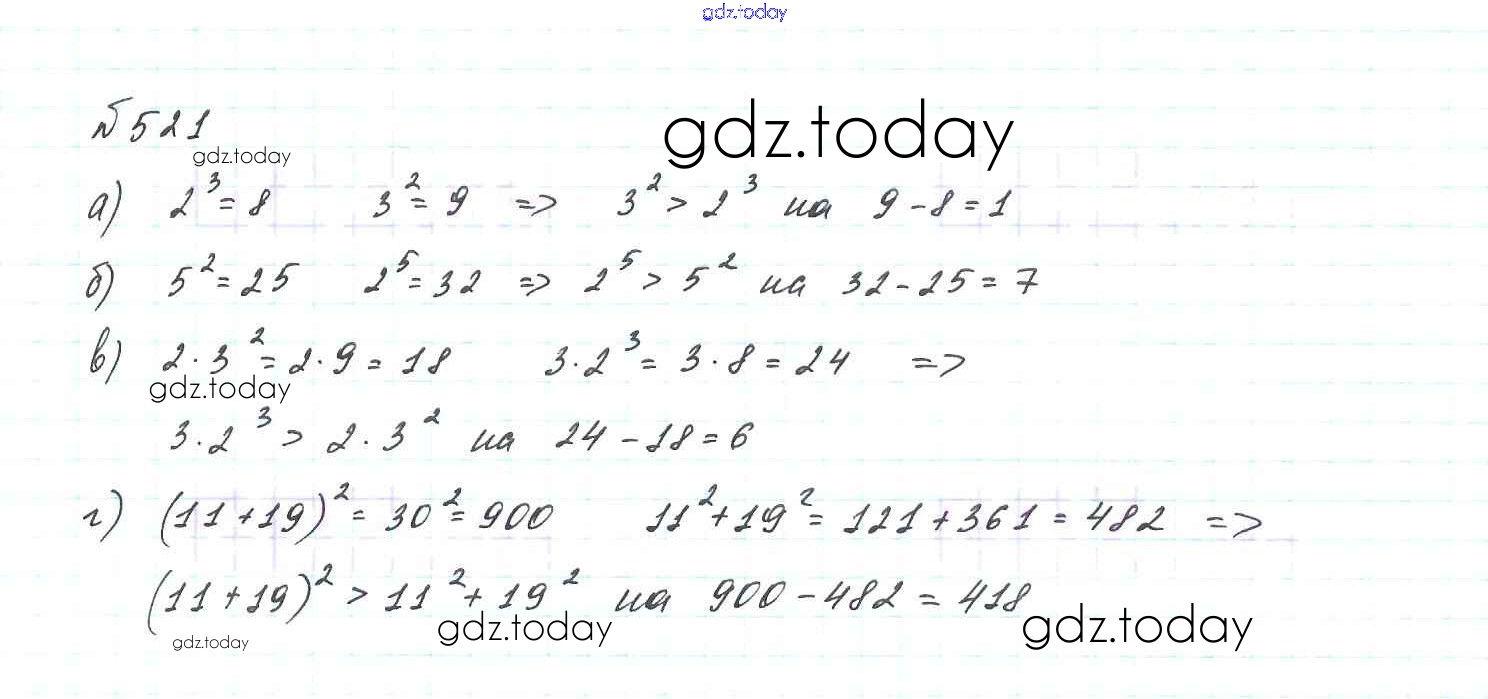 gdz.today
№521
gdz.today
gdz.today
а) 2³ = 8 3² = 9 => 3² > 2³ на 9 - 8 = 1
б) 5² = 25 2⁵ = 32 => 2⁵ > 5² на 32 - 25 = 7
в) 2 · 3² = 2 · 9 = 18 3 · 2³ = 3 · 8 = 24 =>
gdz.today
3 · 2³ > 2 · 3² на 24 - 18 = 6
г) (11 + 19)² = 30² = 900 11² + 19² = 121 + 361 = 482 =>
(11 + 19)² > 11² + 19² на 900 - 482 = 418
gdz.today
gdz.today
gdz.today